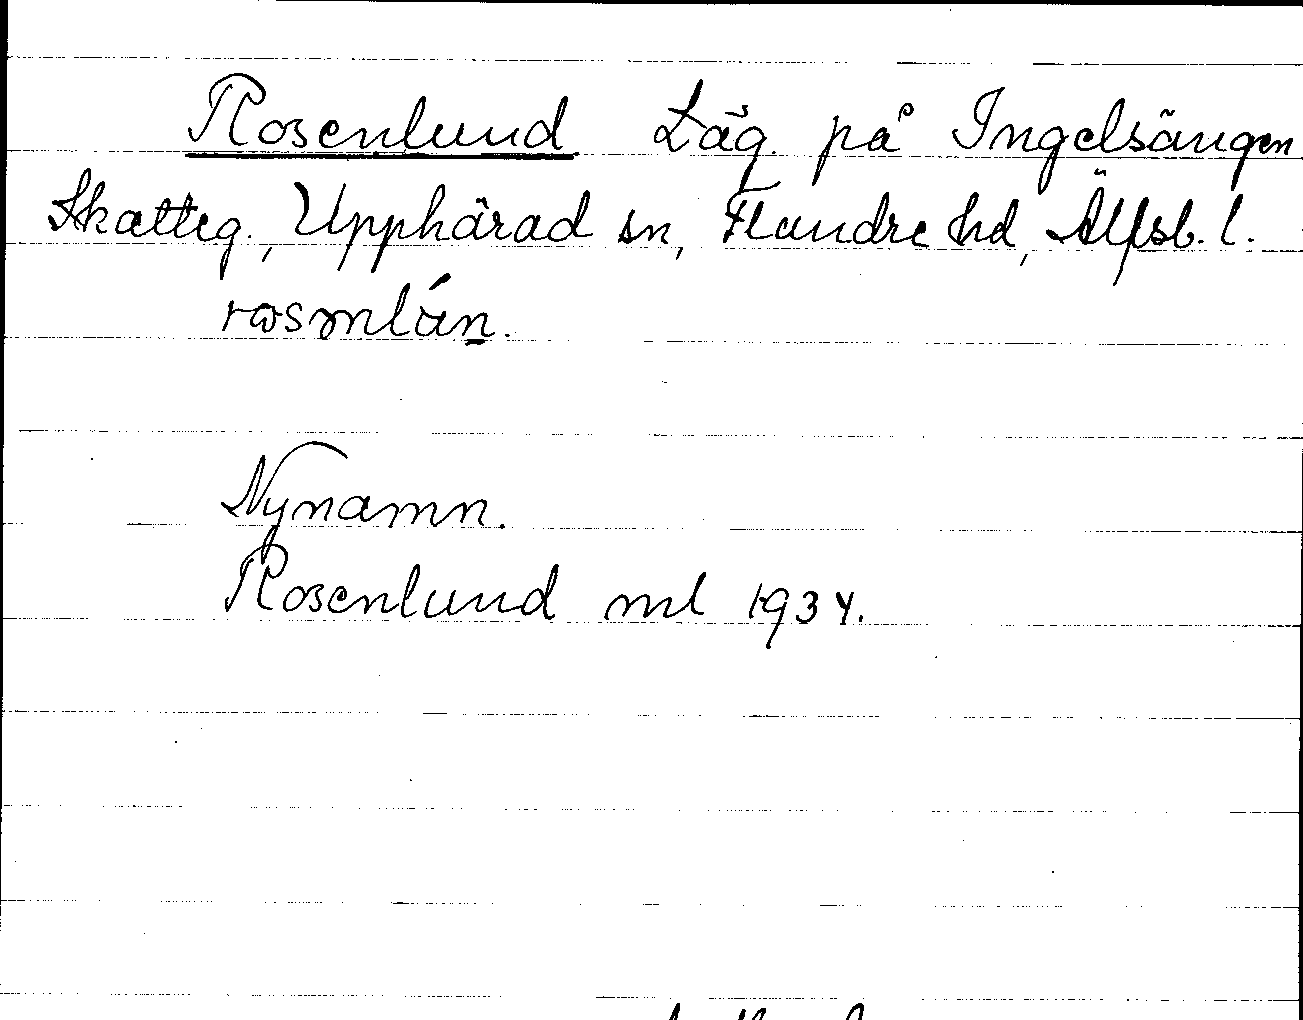 Rosenlund Läg. på Ingelsängen
Skatteg., Upphärad sn, Flundre hd, Älfsb. l.
Nynamn.
Rosenlund ml 1934.